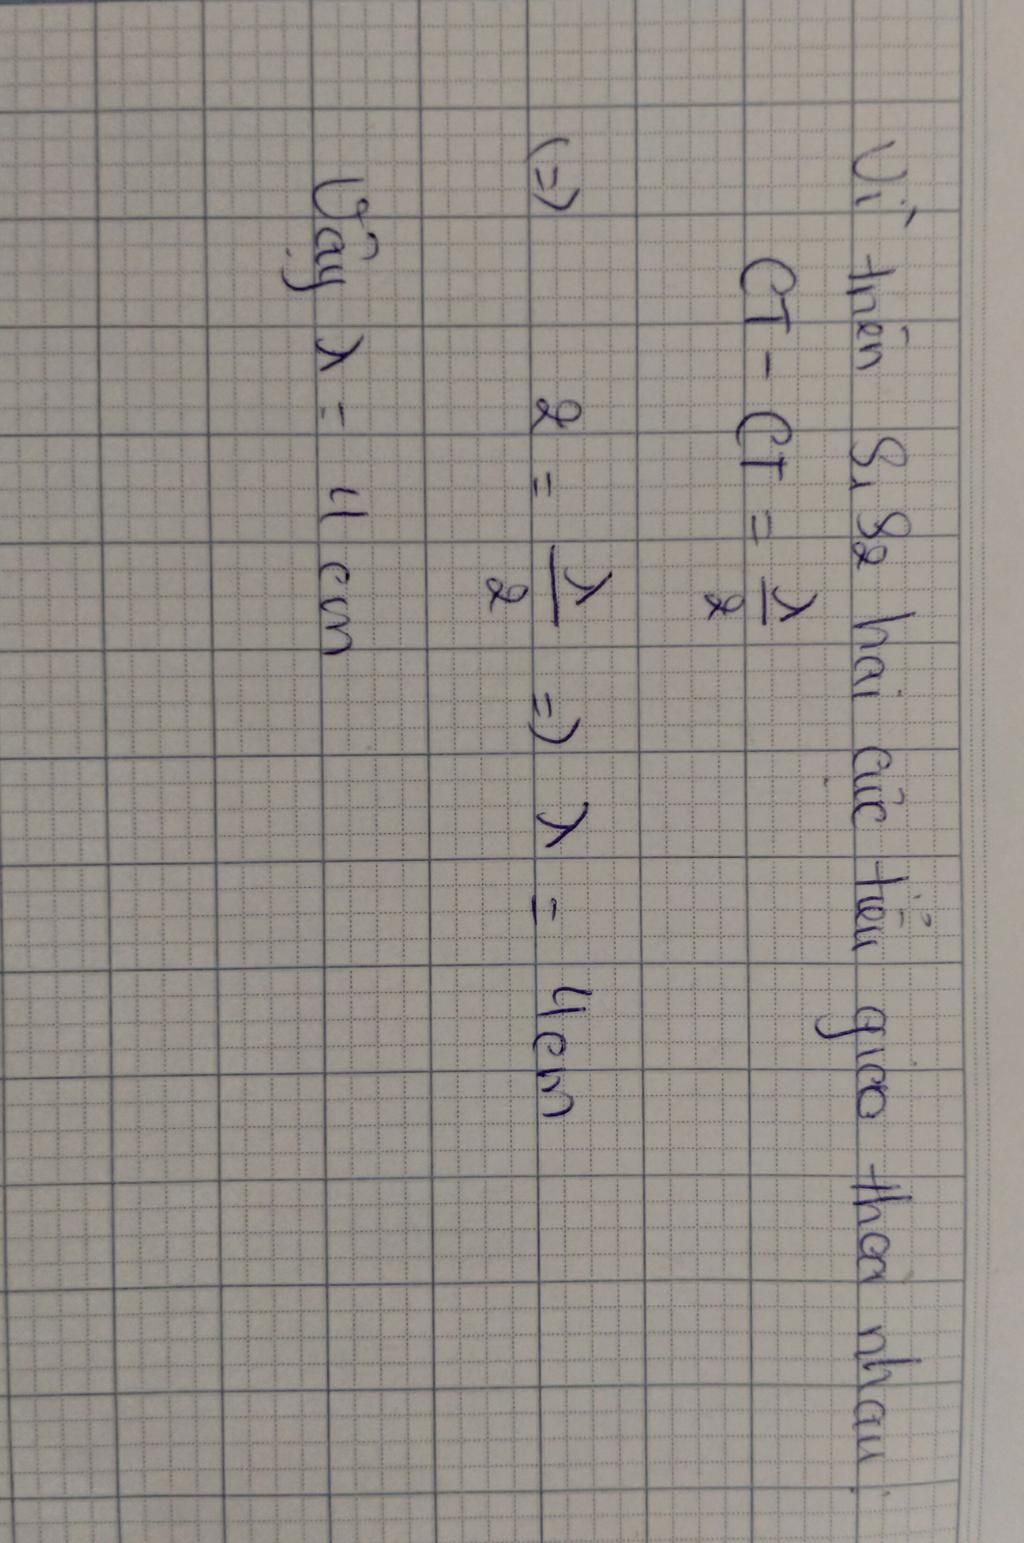 Vì trên S1 S2 hai cực tiểu giao thoa nhau
CT - CT = λ/2
(=) 2 = λ/2 =) λ = 4cm
Vậy λ = 4 cm